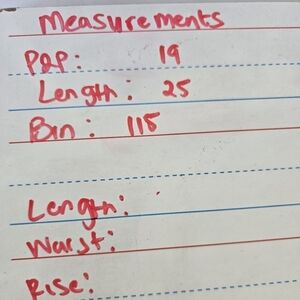 Measurements
P2P: 19
Length: 25
Bin: 115
Length:
Waist:
Rise: